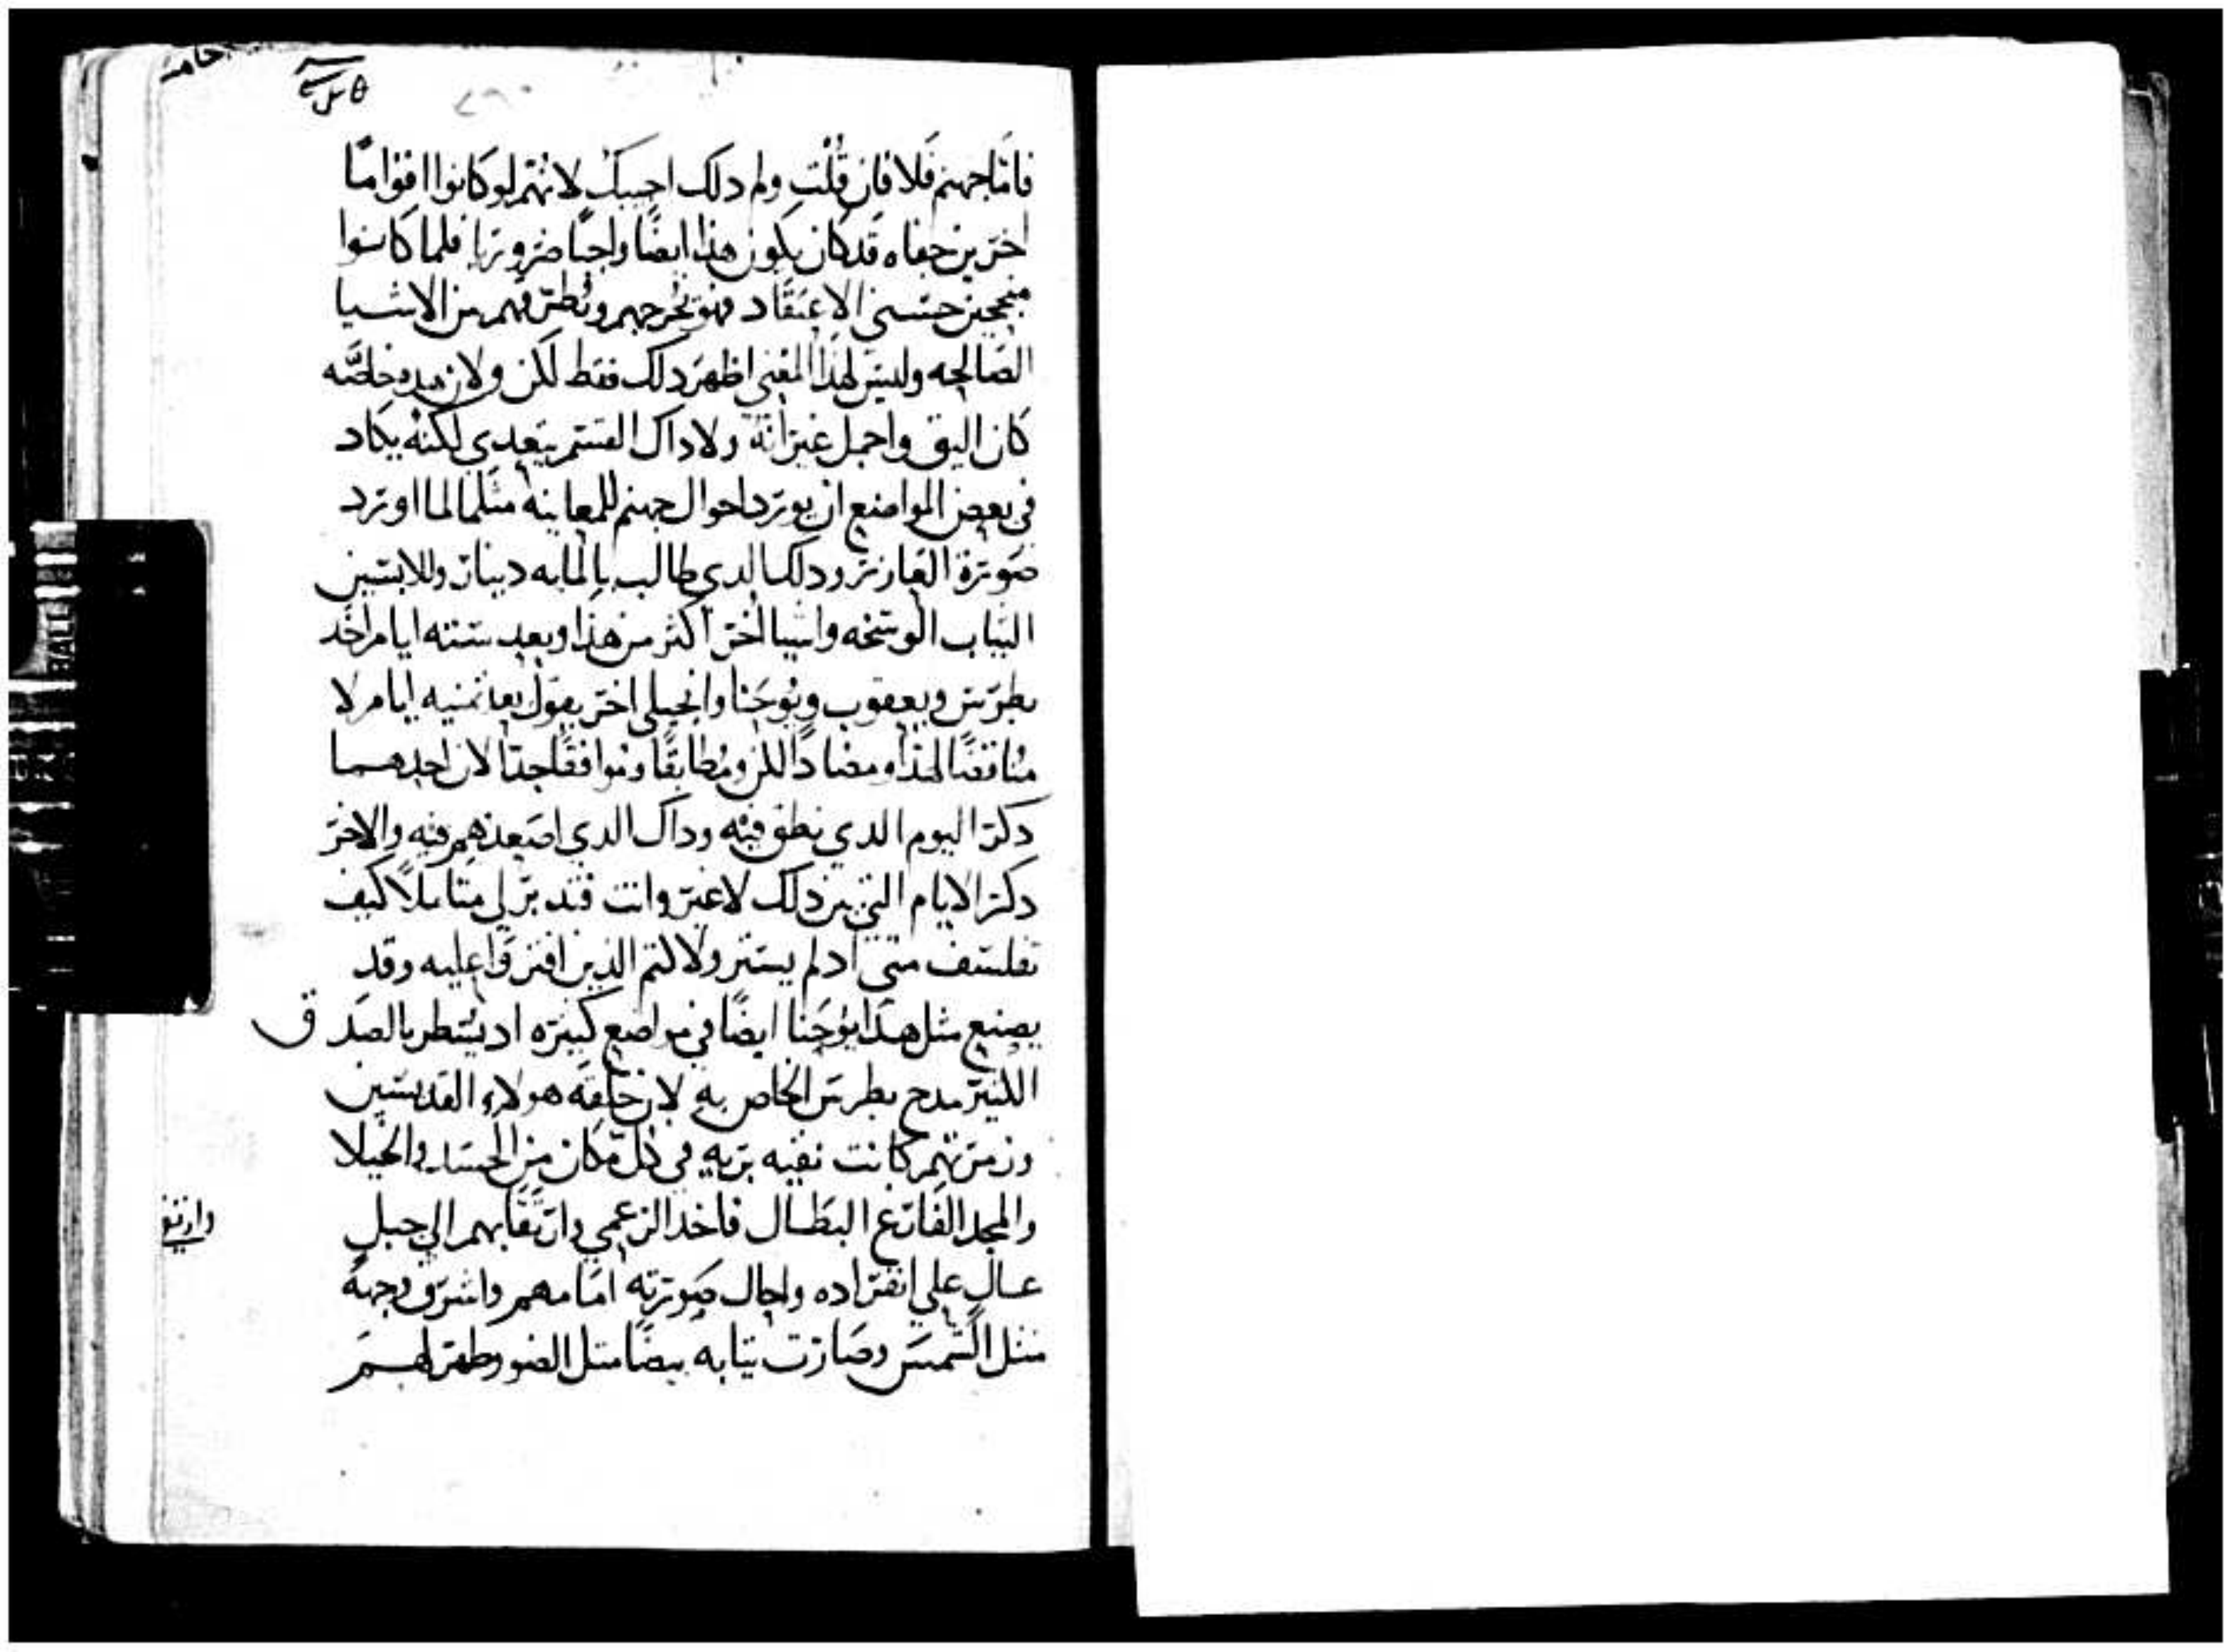 فامّا جهنم فلا فان قُلْت ولم دلك اجيبك لانهم لو كانوا اقواماً
اخرين جفاه قد كان يكون هذا ايضاً واجباً ضروريا فلما كانوا
منجحين حسني الاعتقاد فهو يخرجهم ويطرقهم من الاشيا
الصالحه وليس لهذا المعني اظهر دلك فقط لكن ولان هده خاصّه
كان اليق واجمل غير انه ولا داك القسم يتعدي لكنه يكاد
في بعض المواضع ان يورد احوال جهنم للمعاينه مثلما لما اورد
صورة العازر ودلك الدي طالب بالمايه دينار وللابسين
التياب الوسخه واشيا اخر اكثر من هذا وبعد ستته ايام اخد
بطرس ويعقوب ويوحنا وانجيلي اخر يقول بعد تمنيه ايام لا
مناقضًا لهذا ومضاداً لكن ومُطابقًا وموافقًا جدا لان احدهما
دكر اليوم الدي نطق فيه وداك الدي اصعدهم فيه والاخر
دكر الايام التي بين دلك لا غير وانت فتدبر لي متاملاً كيف
تفلسف متي اد لم يستر ولا لتم الذين افترقوا عليه وقد
يصنع مثل هدا يوحنا ايضًا في مواضع كثيره اد يسطر بالصدق
الكثير مدح بطرس الخاص به لان حلقه هولاء القديسين
وزمرتهم كانت نقيه بريه في كل مكان من الحسد والخيلا
والمجد الفارغ البطال فاخد الزعمي وارتقا بهم الي جبل
وارتفع
عال علي انفراده واحال صورته امامهم واشرق وجهه
مثل الشمس وصارت تيابه بيضًا متل الضو وظهر لهم